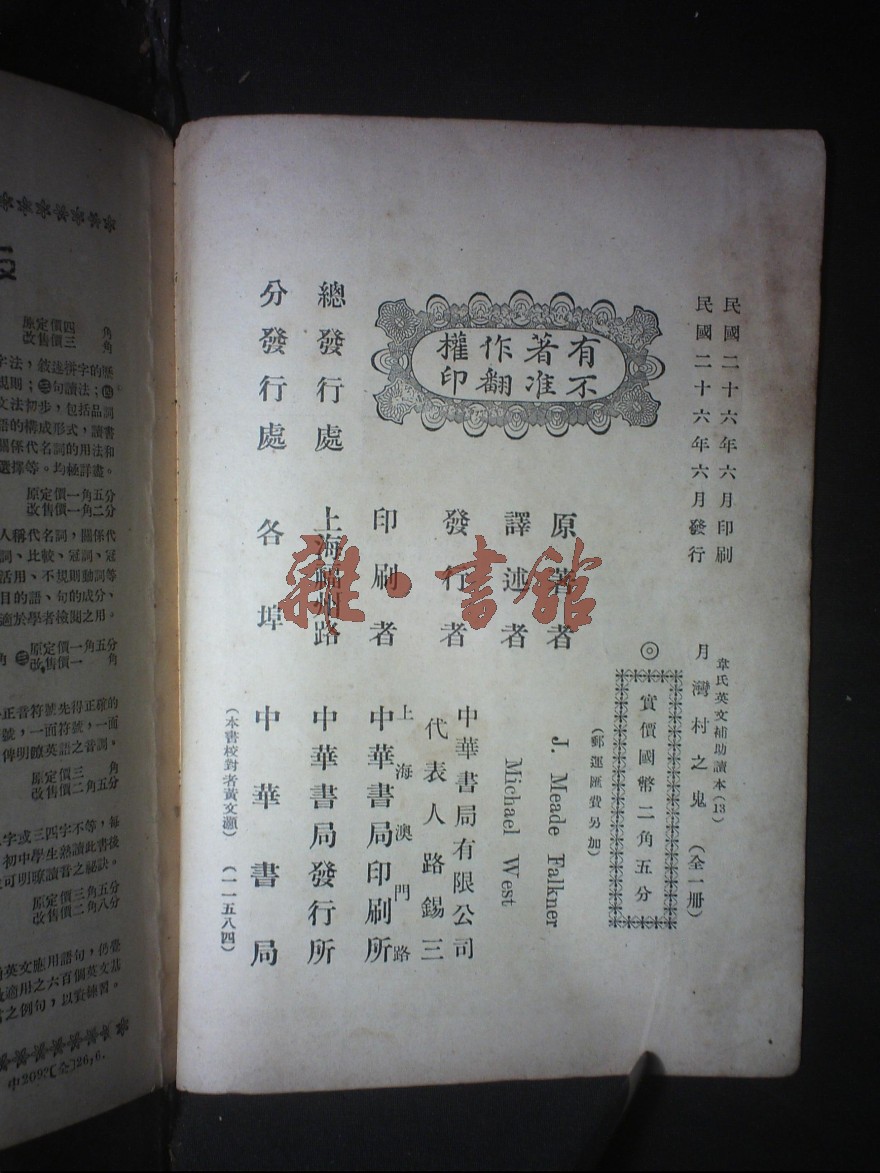 民國二十六年六月印刷
民國二十六年六月發行
韋氏英文補助讀本(13)
月灣村之鬼(全一冊)
◎實價國幣二角五分
(郵運匯費另加)
有著作權
不准翻印
原著者 J. Meade Falkner
譯述者 Michael West
發行者 中華書局有限公司
代表人路錫三
印刷者 上海澳門路
中華書局印刷所
總發行處 上海福州路 中華書局發行所
分發行處 各埠 中華書局
(本書校對者黃文灝)(一一五八四)
雜·書館
原定價四角
改售價三角
字法,敘述拼字的歷
規則;㊂句讀法;㊃
文法初步,包括品詞
語的構成形式,讀書
關係代名詞的用法和
選擇等。均極詳盡。
原定價一角五分
改售價一角二分
人稱代名詞,關係代
詞、比較、冠詞、冠
活用、不規則動詞等
目的語、句的成分、
適於學者檢閱之用。
角 ㊂原定價一角五分
改售價一角
正音符號先得正確的
號,一面符號,一面
俾明瞭英語之音調,
原定價三角
改售價二角五分
字或三四字不等,每
初中學生熟讀此書後
可明瞭讀音之祕訣。
原定價三角五分
改售價二角八分
英文應用語句,仍發
適用之六百個英文基
之例句,以資練習。
中2092[全]26,6.